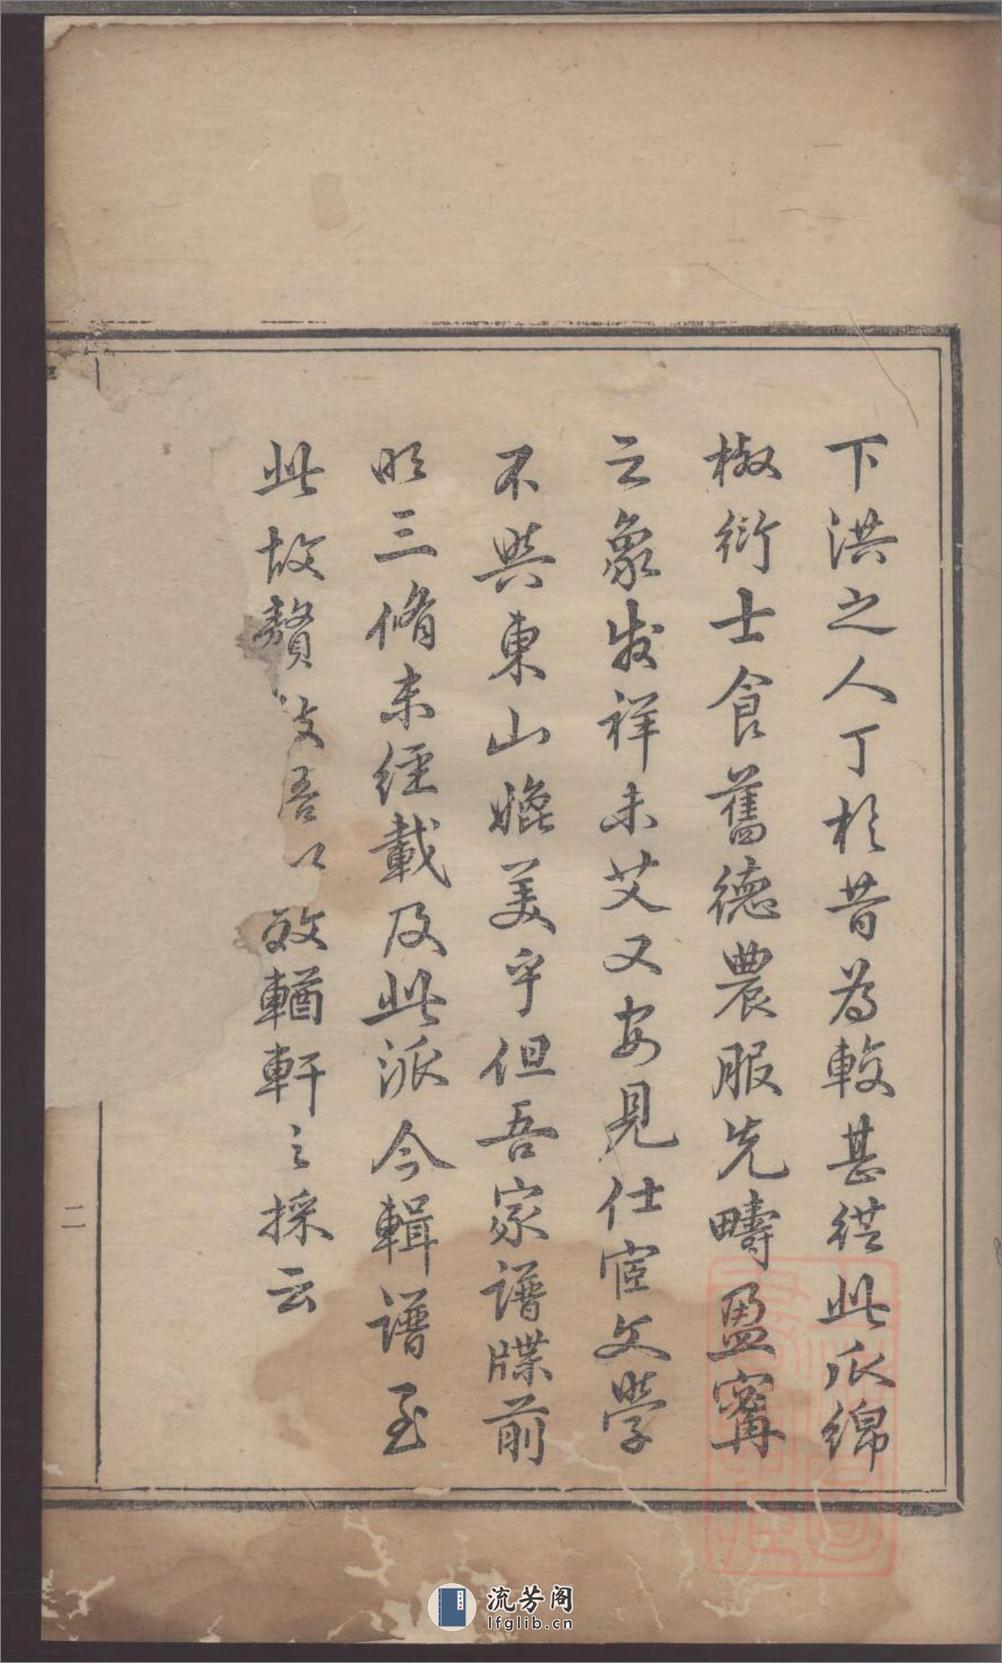 下洪之人丁於昔為較甚從此瓜綿
椒衍士食舊德農服先疇盈寧
之象发祥未艾又安見仕宦文學
不與東山媲美乎但吾家譜牒前
明三脩未經載及此派今輯譜至
此故贅 吾以 輶軒之採云
二
流芳阁
lfglib.cn